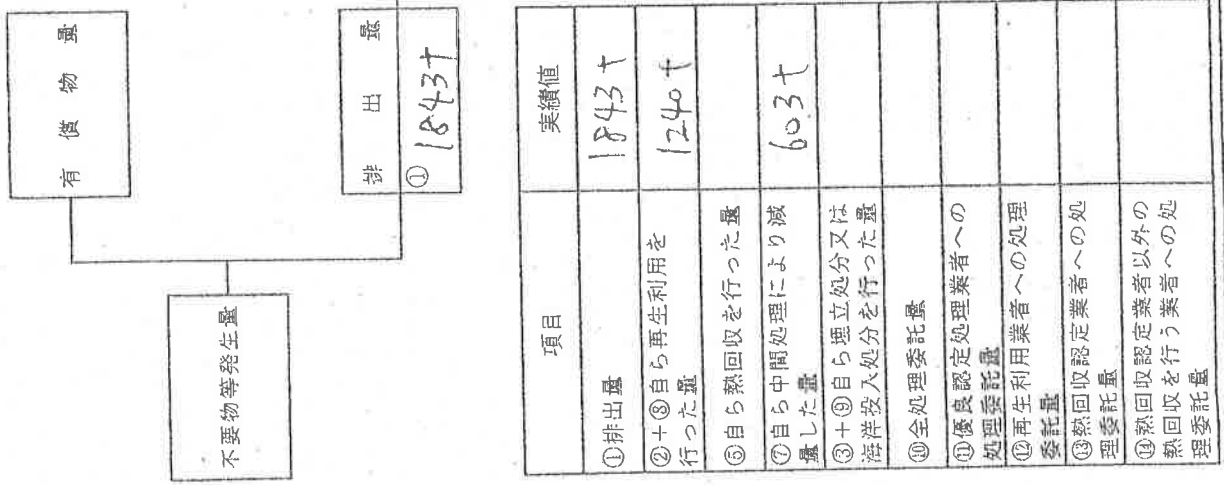 不要物等発生量
有償物量
排出量
① 1843t
項目
実績値
①排出量
1843t
②+⑧自ら再生利用を
行った量
1240t
⑤自ら熱回収を行った量
⑦自ら中間処理により減
量した量
603t
③+⑨自ら埋立処分又は
海洋投入処分を行った量
⑩全処理委託量
⑪優良認定処理業者への
処理委託量
⑫再生利用業者への処理
委託量
⑬熱回収認定業者への処
理委託量
⑭熱回収認定業者以外の
熱回収を行う業者への処
理委託量